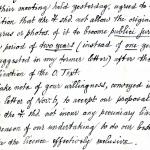 their meeting held yesterday, agreed to
tion that the 4 did not allow the original
or photos. of it to become public jur
period of two years (instead of one ye
uggested in my former letter) after the
ination of the O. Text.
take note of your willingness, conveyed i
letter of Nov 6, to accept our proposal
the 4 shd. not incur any pecuniary liab
reason of our undertaking to do our best
the licence effectively exclusive.